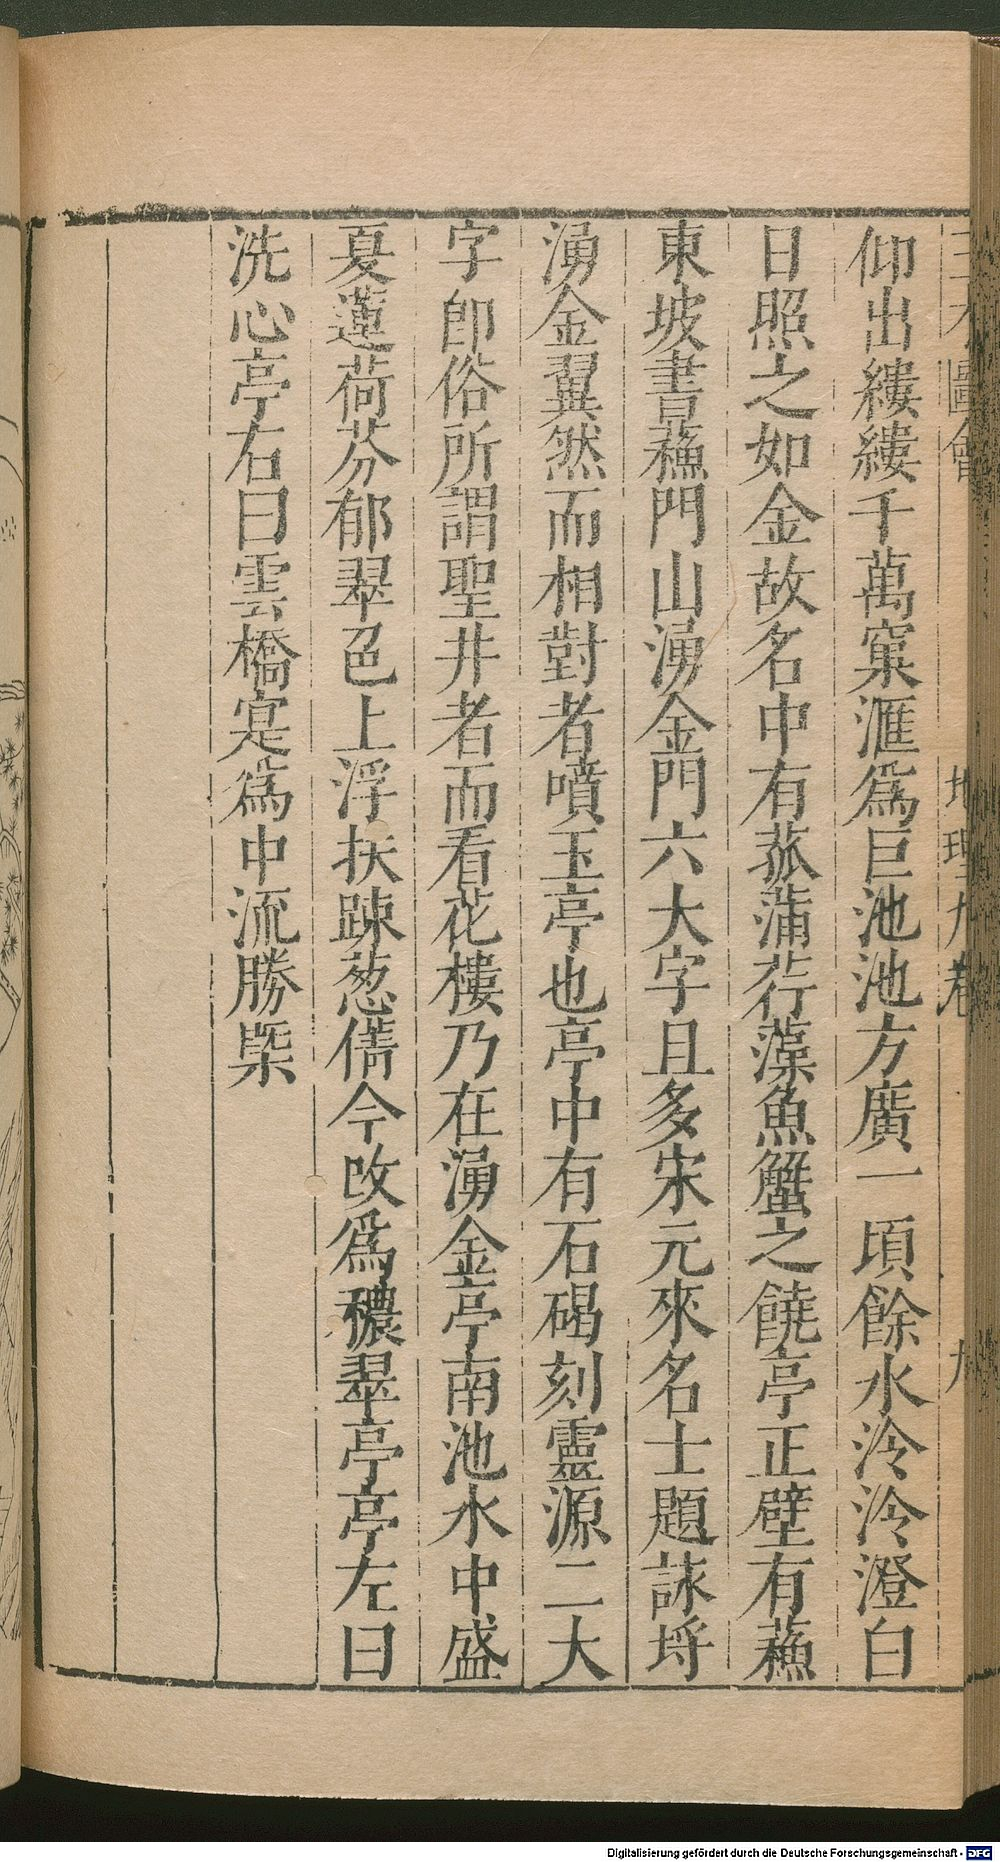 三才圖會 地理九卷 九
仰出縷縷千萬窠滙爲巨池池方廣一頃餘水泠泠澄白
日照之如金故名中有菰蒲荇藻魚蟹之饒亭正壁有蘓
東坡書蘓門山湧金門六大字且多宋元來名士題詠埓
湧金翼然而相對者噴玉亭也亭中有石碣刻靈源二大
字卽俗所謂聖井者而看花樓乃在湧金亭南池水中盛
夏蓮荷芬郁翠色上浮扶踈葱倩今改爲穠翠亭亭左曰
洗心亭右曰雲橋寔爲中流勝槩
Digitalisierung gefördert durch die Deutsche Forschungsgemeinschaft - DFG